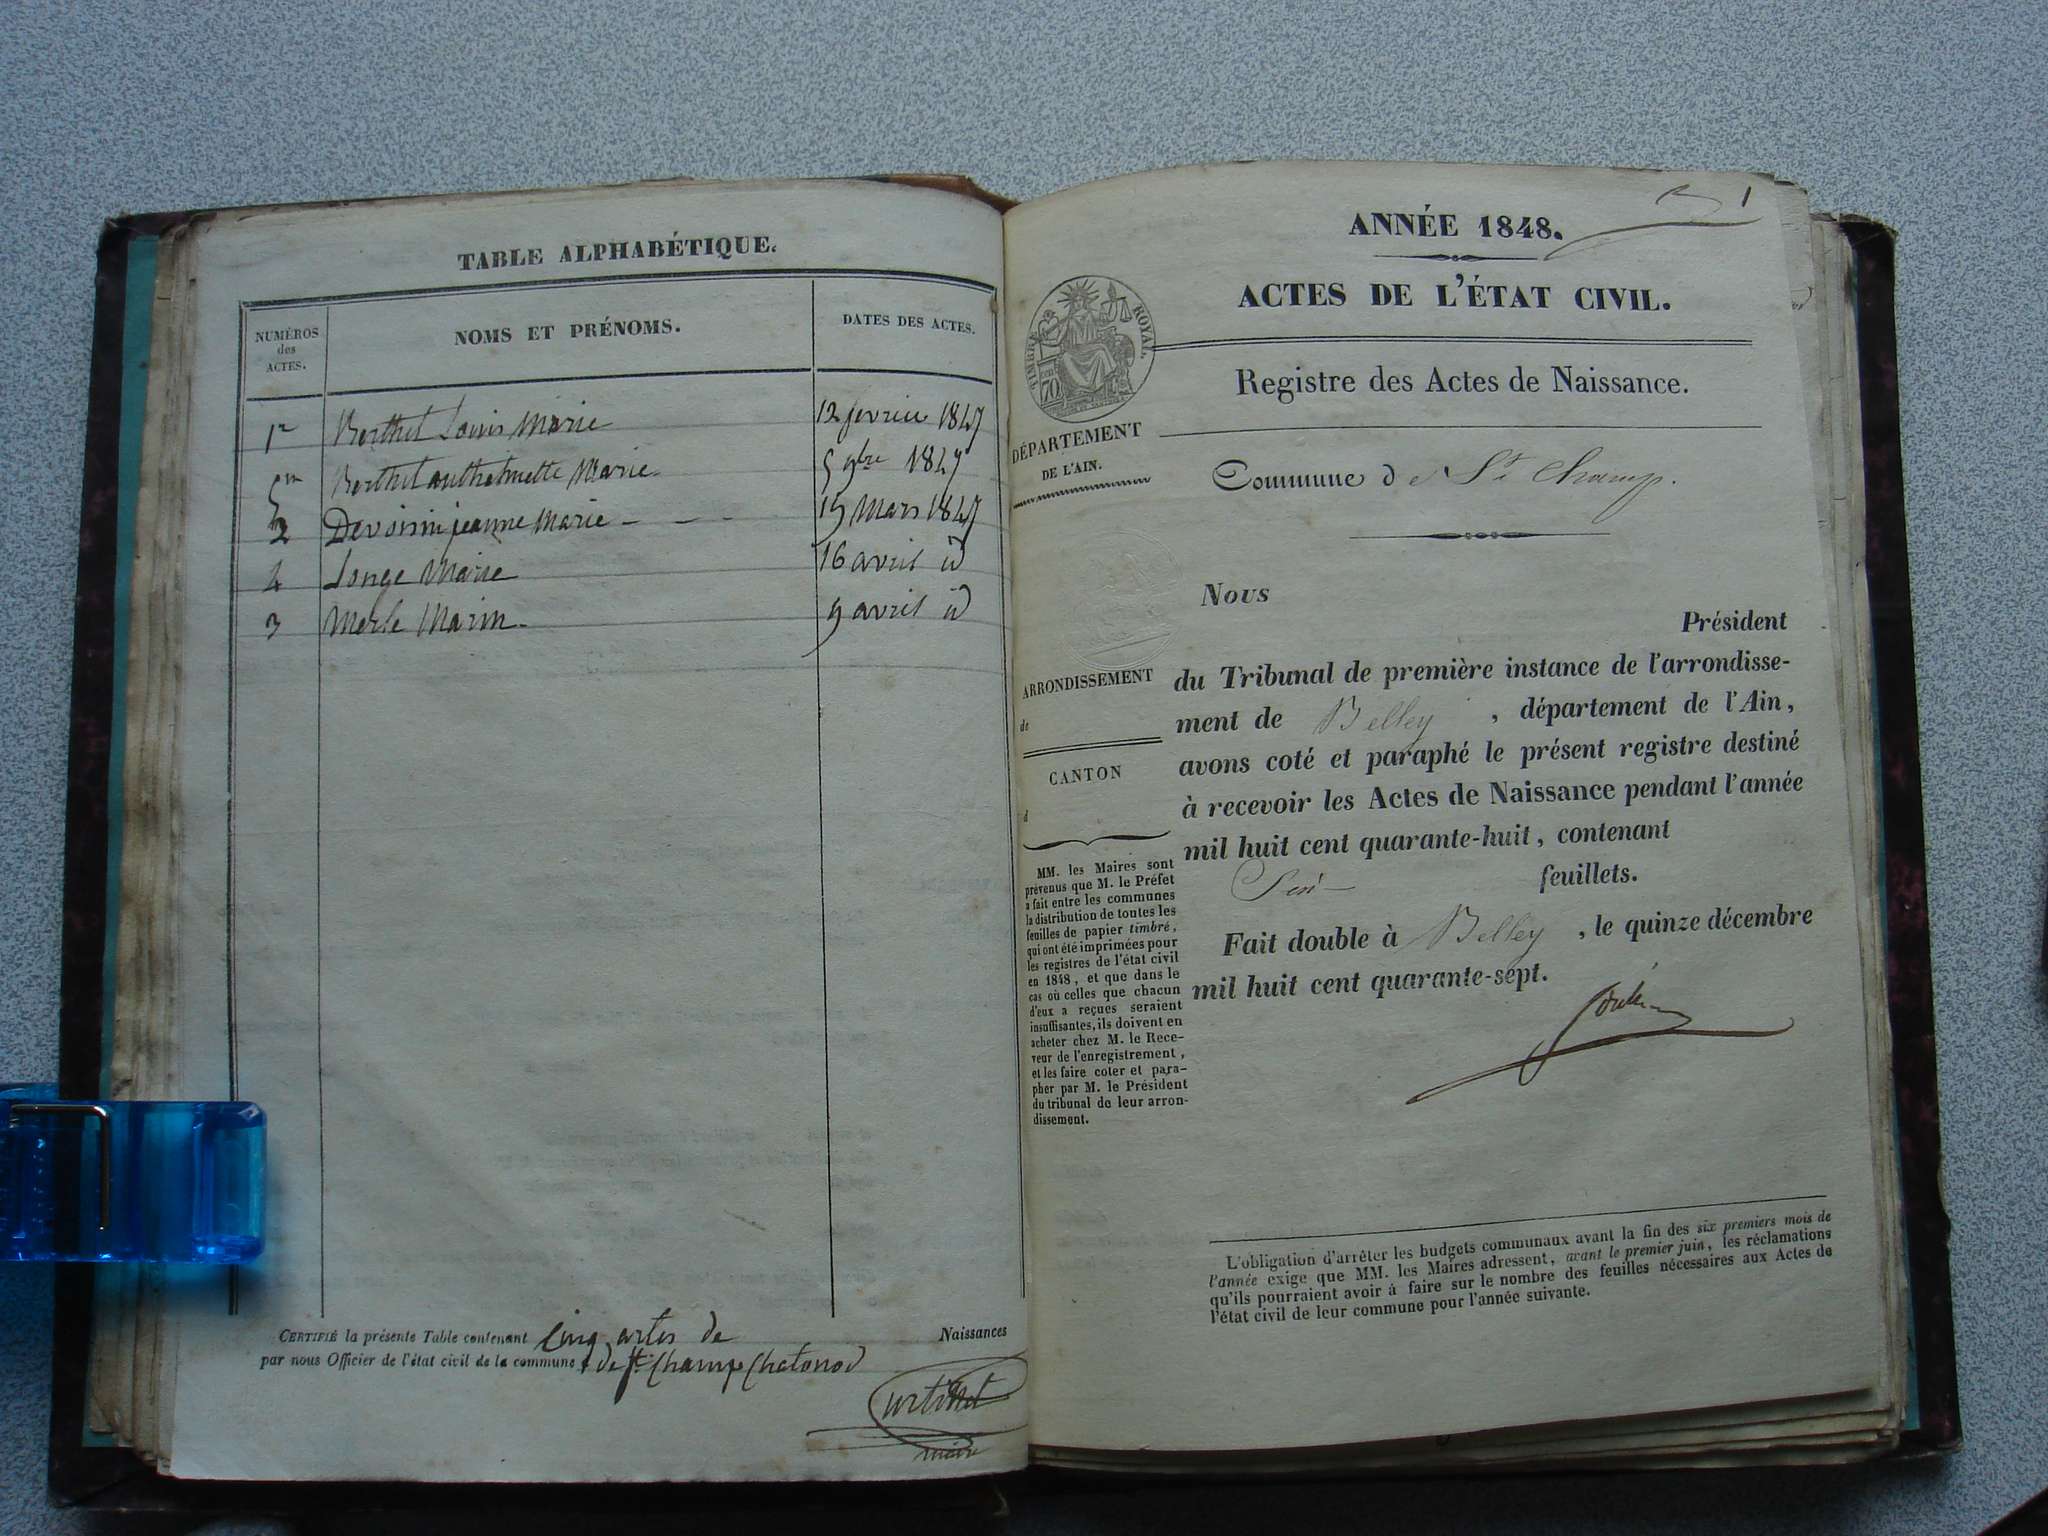 TABLE ALPHABÉTIQUE.
NUMÉROS des ACTES.
NOMS ET PRÉNOMS.
DATES DES ACTES.
1er Berthet Louis Marie 12 fevrier 1847
5 Berthet anthelmette Marie 5 9bre 1847
2 Devoisin jeanne Marie - - - 15 Mars 1847
4 Longe Marie 16 avril id
3 Merle Marin 9 avril id
CERTIFIÉ la présente Table contenant Cinq actes de Naissances
par nous Officier de l'état civil de la commune de St Champ Chatonod
maire
1
ANNÉE 1848.
ACTES DE L'ÉTAT CIVIL.
TIMBRE ROYAL.
70
Registre des Actes de Naissance.
DÉPARTEMENT
DE L'AIN.
Commune de St Champ.
Nous
Président
du Tribunal de première instance de l'arrondisse-
ment de Belley, département de l'Ain,
avons coté et paraphé le présent registre destiné
à recevoir les Actes de Naissance pendant l'année
mil huit cent quarante-huit, contenant
feuillets.
Fait double à Belley, le quinze décembre
mil huit cent quarante-sept.
ARRONDISSEMENT
de
CANTON
d
MM. les Maires sont
prévenus que M. le Préfet
a fait entre les communes
la distribution de toutes les
feuilles de papier timbré,
qui ont été imprimées pour
les registres de l'état civil
en 1848, et que dans le
cas où celles que chacun
d'eux a reçues seraient
insuffisantes, ils doivent en
acheter chez M. le Rece-
veur de l'enregistrement,
et les faire coter et para-
pher par M. le Président
du tribunal de leur arron-
dissement.
L'obligation d'arrêter les budgets communaux avant la fin des six premiers mois de
l'année exige que MM. les Maires adressent, avant le premier juin, les réclamations
qu'ils pourraient avoir à faire sur le nombre des feuilles nécessaires aux Actes de
l'état civil de leur commune pour l'année suivante.